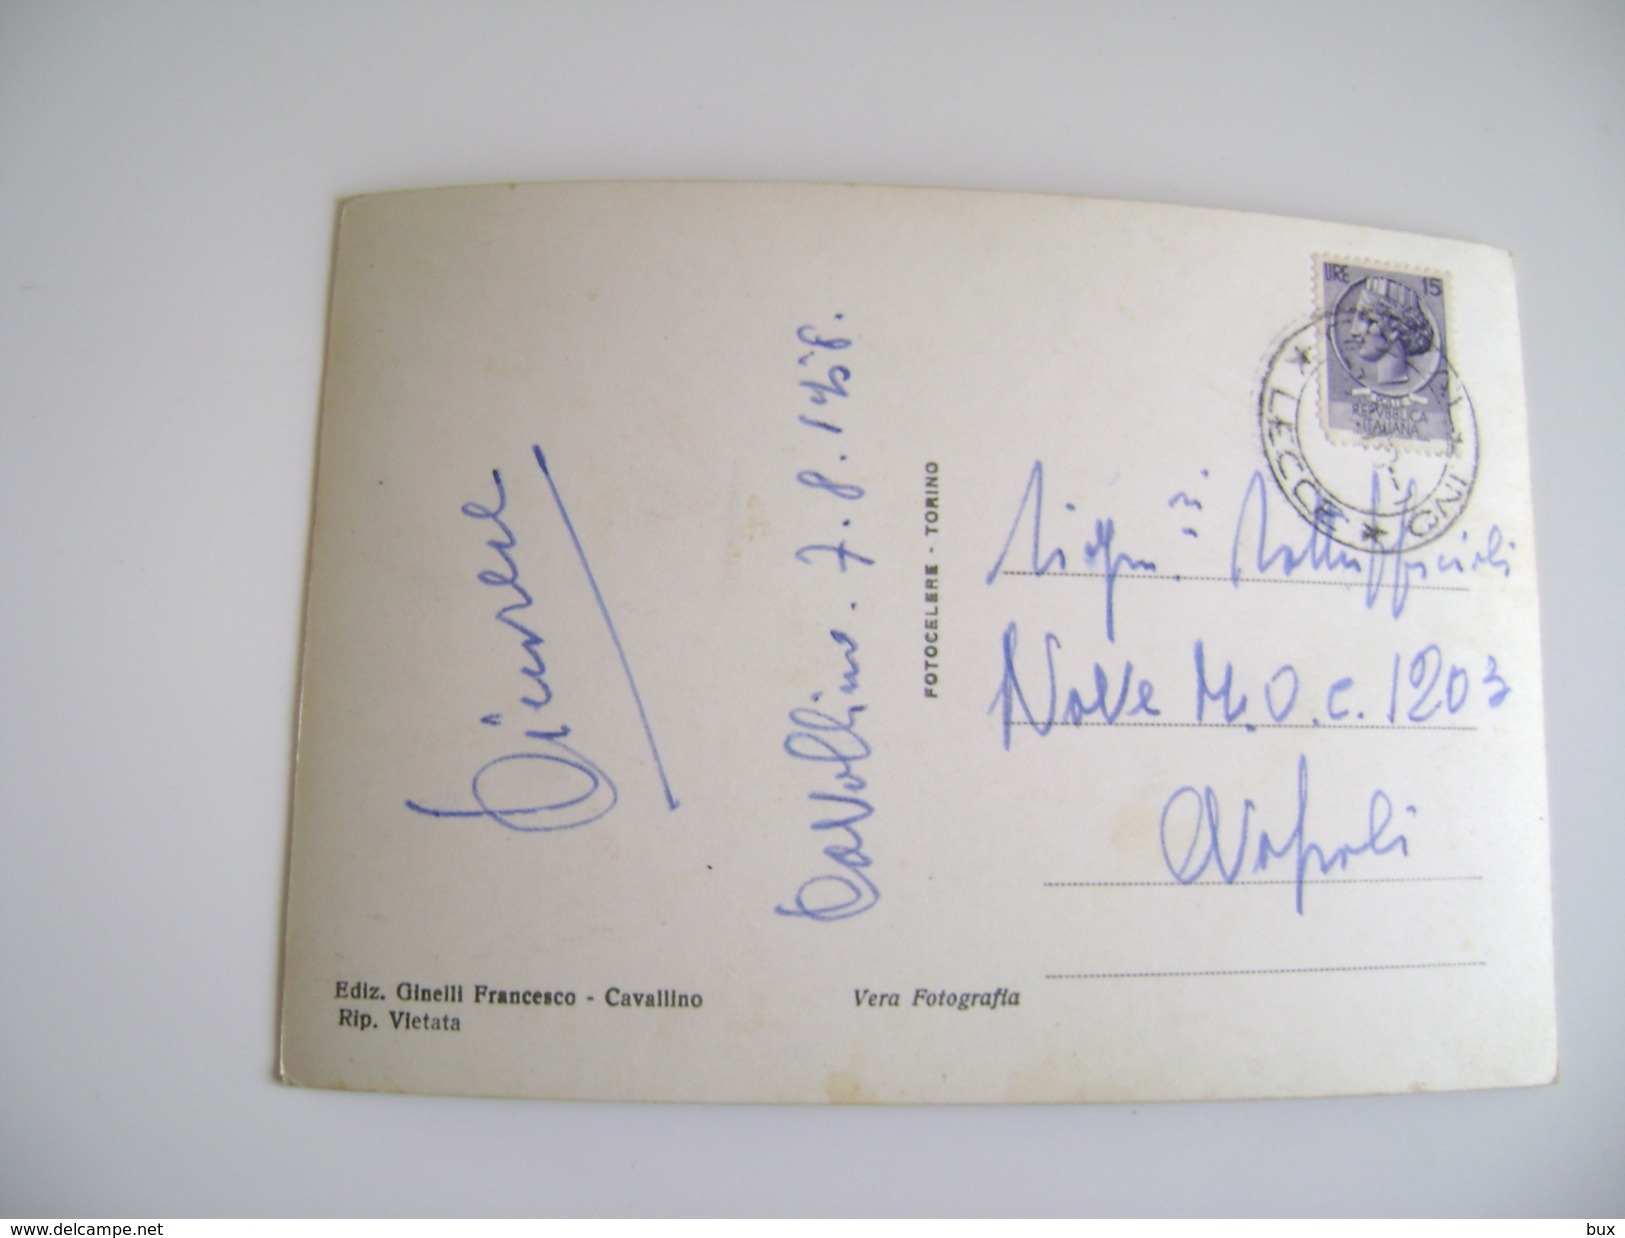 Cavallino. 7.8.1958.
FOTOCELERE - TORINO
LIRE 15
REPVBBLICA
ITALIANA
LECCE
Sottufficiali
Nave M.O.C. 1203
Napoli
Ediz. Ginelli Francesco - Cavallino
Rip. Vietata
Vera Fotografia
www.delcampe.net
bux